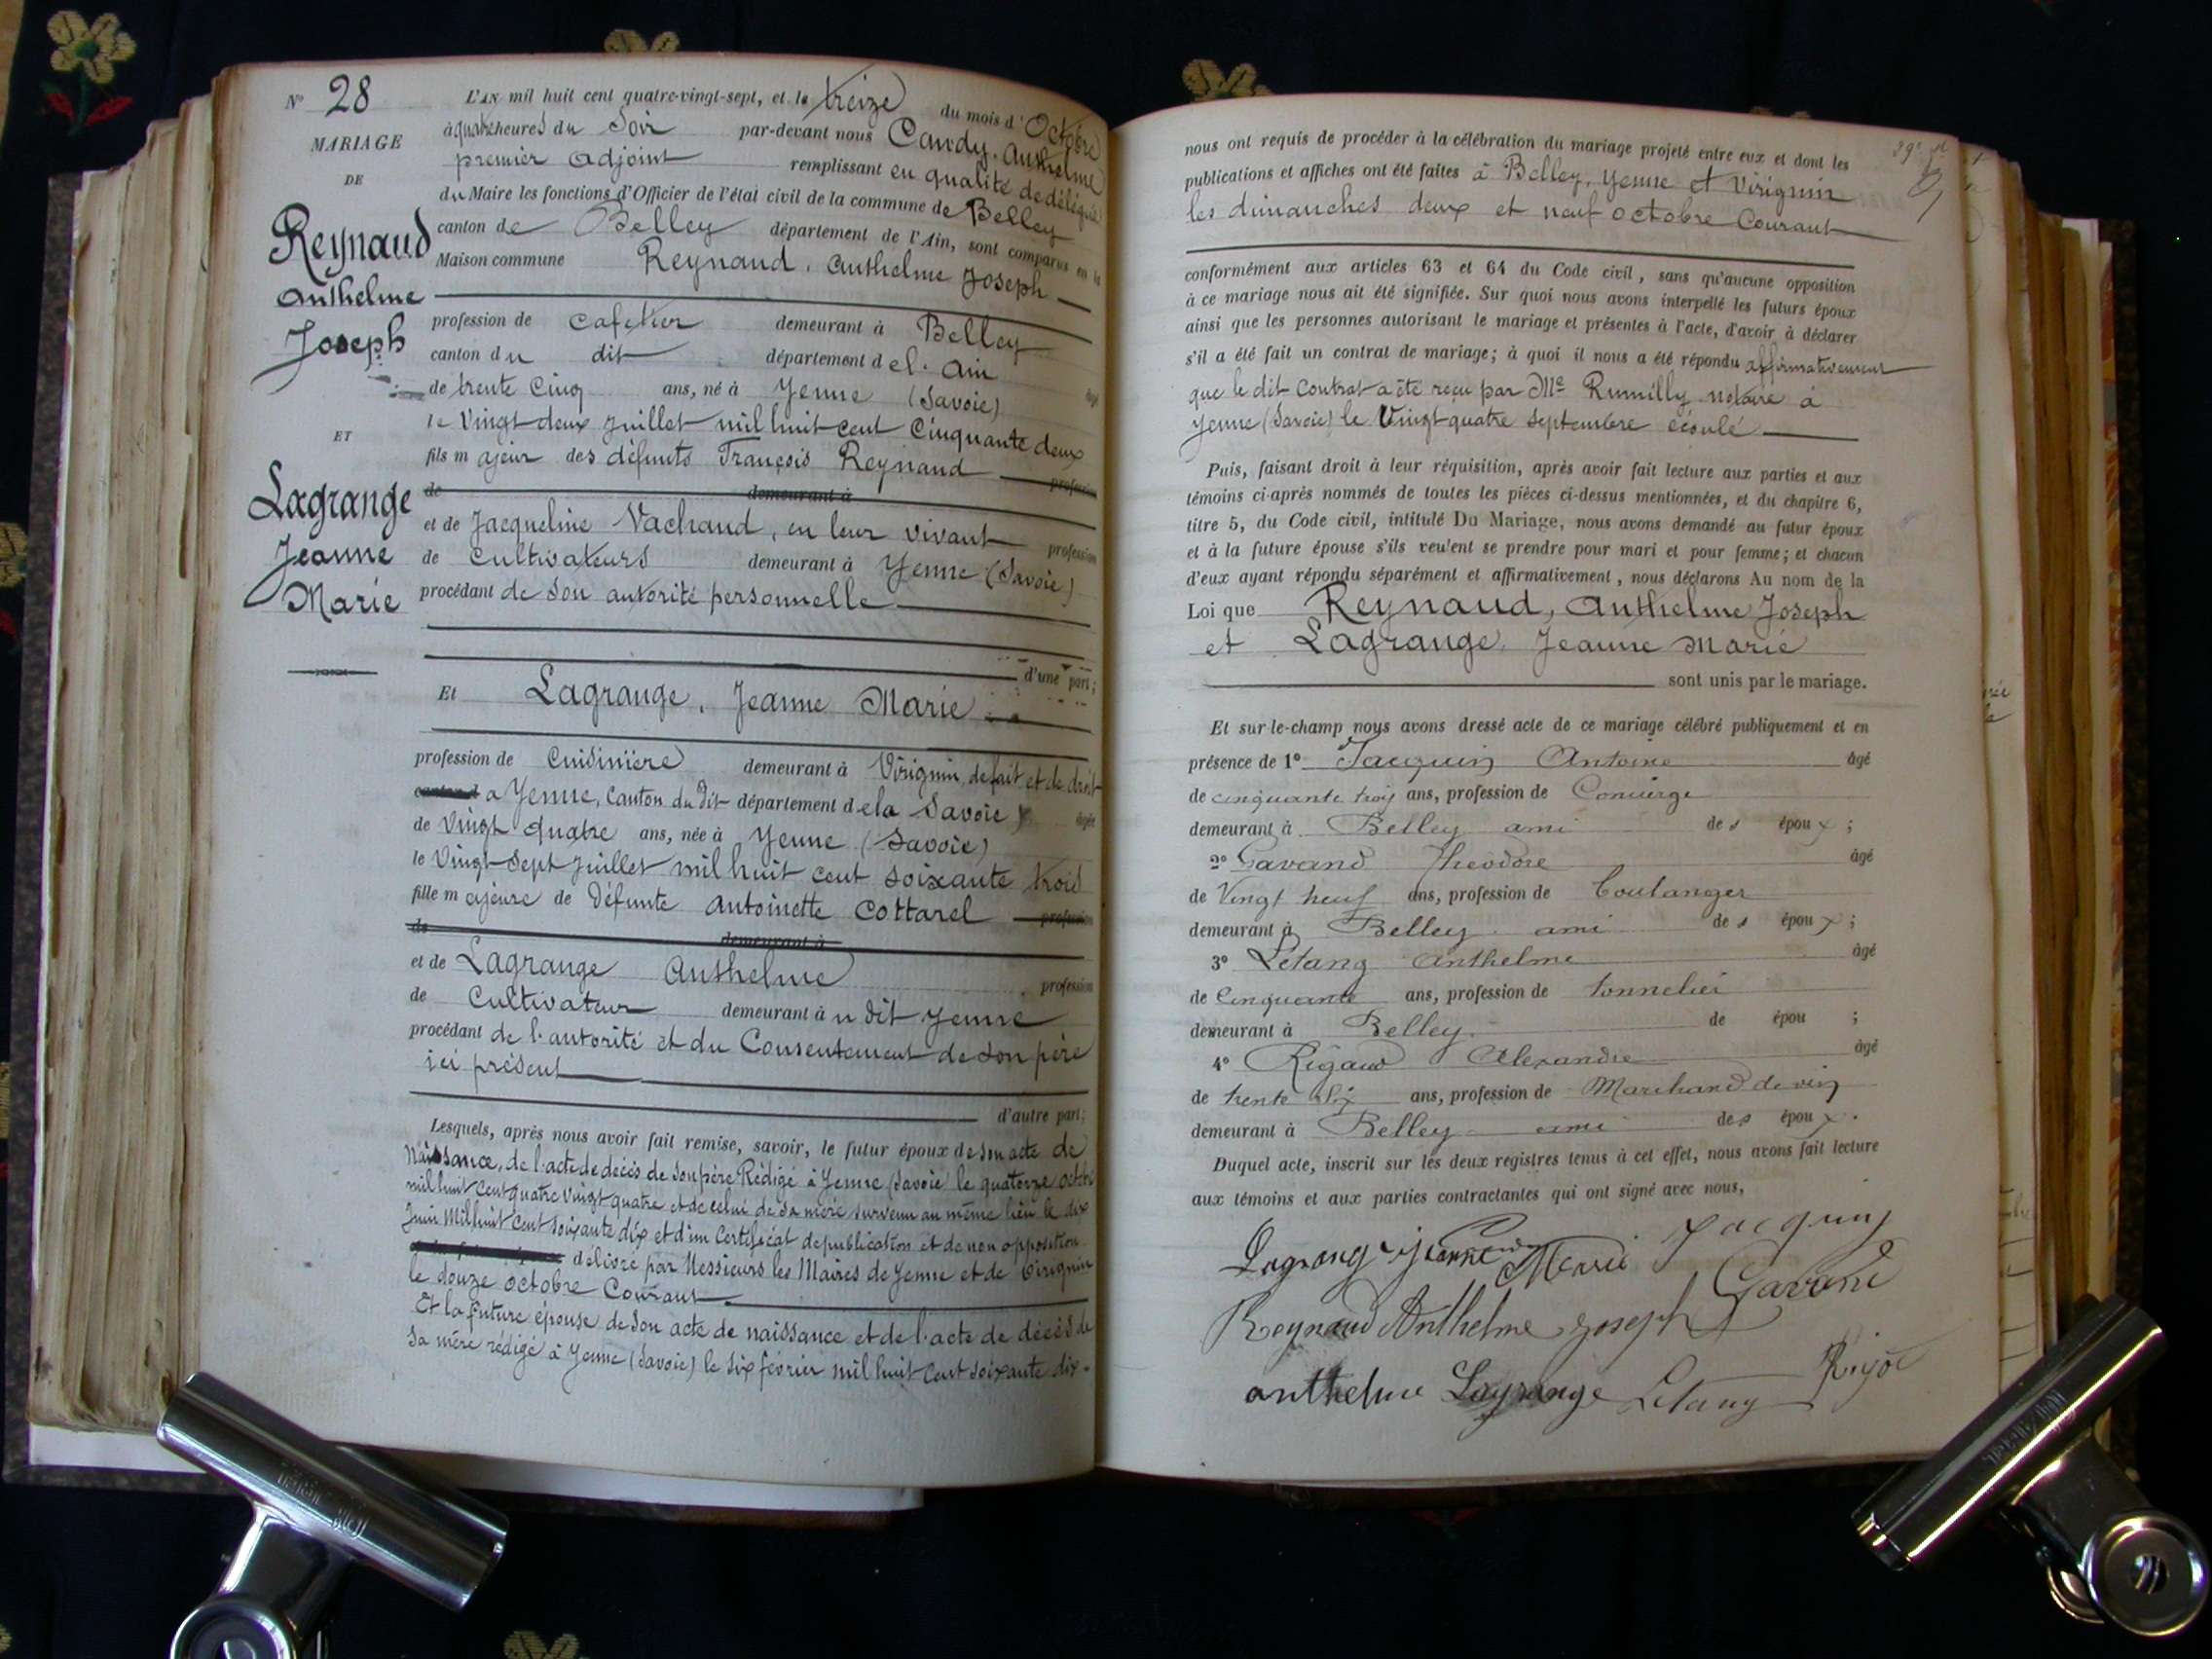 N° 28
MARIAGE
DE
Reynaud
Anthelme
Joseph
ET
Lagrange
Jeanne
Marie
L'AN mil huit cent quatre-vingt-sept, et le treize du mois d'Octobre
à quatre heures du Soir par-devant nous Candy, Anthelme
premier adjoint remplissant en qualité de délégué
du Maire les fonctions d'Officier de l'état civil de la commune de Belley
canton de Belley département de l'Ain, sont comparus en la
Maison commune Reynaud, Anthelme Joseph
profession de cafetier demeurant à Belley
canton du dit département de l'Ain âgé
de trente cinq ans, né à Yenne (Savoie)
le Vingt deux juillet mil huit cent Cinquante deux
fils majeur des défunts François Reynaud profession
de demeurant à
et de Jacqueline Vachaud, en leur vivant profession
de Cultivateurs demeurant à Yenne (Savoie)
procédant de son autorité personnelle
d'une part;
Et Lagrange, Jeanne Marie
profession de Cuisinière demeurant à Virignin, de fait et de droit
canton d a Yenne, Canton du dit département de la Savoie âgée
de Vingt quatre ans, née à Yenne (Savoie)
le Vingt sept juillet mil huit cent soixante trois
fille majeure de défunte Antoinette Cottarel profession
de demeurant à
et de Lagrange Anthelme profession
de Cultivateur demeurant à u dit Yenne
procédant de l'autorité et du Consentement de son père
ici présent
d'autre part;
Lesquels, après nous avoir fait remise, savoir, le futur époux de son acte de
Naissance, de l'acte de décès de son père Rédigé à Yenne (Savoie) le quatorze octobre
mil huit cent quatre vingt quatre et de celui de sa mère survenu au même lieu le dix
Juin Mil huit Cent soixante dix et d'un Certificat de publication et de non opposition
délivré par Messieurs les Maires de Yenne et de Virignin
le douze octobre Courant
Et la future épouse de son acte de naissance et de l'acte de décès de
sa mère rédigé à Yenne (Savoie) le six février mil huit Cent soixante dix-
nous ont requis de procéder à la célébration du mariage projeté entre eux et dont les
publications et affiches ont été faites à Belley, Yenne et Virignin
les dimanches deux et neuf octobre Courant
conformément aux articles 63 et 64 du Code civil, sans qu'aucune opposition
à ce mariage nous ait été signifiée. Sur quoi nous avons interpellé les futurs époux
ainsi que les personnes autorisant le mariage et présentes à l'acte, d'avoir à déclarer
s'il a été fait un contrat de mariage; à quoi il nous a été répondu affirmativement
que le dit Contrat a été reçu par Me Rumilly notaire à
Yenne (Savoie) le Vingt quatre septembre écoulé
Puis, faisant droit à leur réquisition, après avoir fait lecture aux parties et aux
témoins ci-après nommés de toutes les pièces ci-dessus mentionnées, et du chapitre 6,
titre 5, du Code civil, intitulé Du Mariage, nous avons demandé au futur époux
et à la future épouse s'ils veulent se prendre pour mari et pour femme; et chacun
d'eux ayant répondu séparément et affirmativement, nous déclarons Au nom de la
Loi que Reynaud, Anthelme Joseph
et Lagrange, Jeanne Marie
sont unis par le mariage.
Et sur-le-champ nous avons dressé acte de ce mariage célébré publiquement et en
présence de 1° Jacquin Antoine âgé
de cinquante trois ans, profession de Concierge
demeurant à Belley ami des époux;
2° Gavand Théodore âgé
de Vingt neuf ans, profession de boulanger
demeurant à Belley ami des époux;
3° Létang Anthelme âgé
de Cinquante ans, profession de tonnelier
demeurant à Belley de épou ;
4° Rigaud Alexandre âgé
de trente six ans, profession de Marchand de vin
demeurant à Belley ami des époux.
Duquel acte, inscrit sur les deux registres tenus à cet effet, nous avons fait lecture
aux témoins et aux parties contractantes qui ont signé avec nous,
Lagrange Jeanne Marie Jacquin
Gavand
Reynaud Anthelme Joseph
anthelme Lagrange Letang